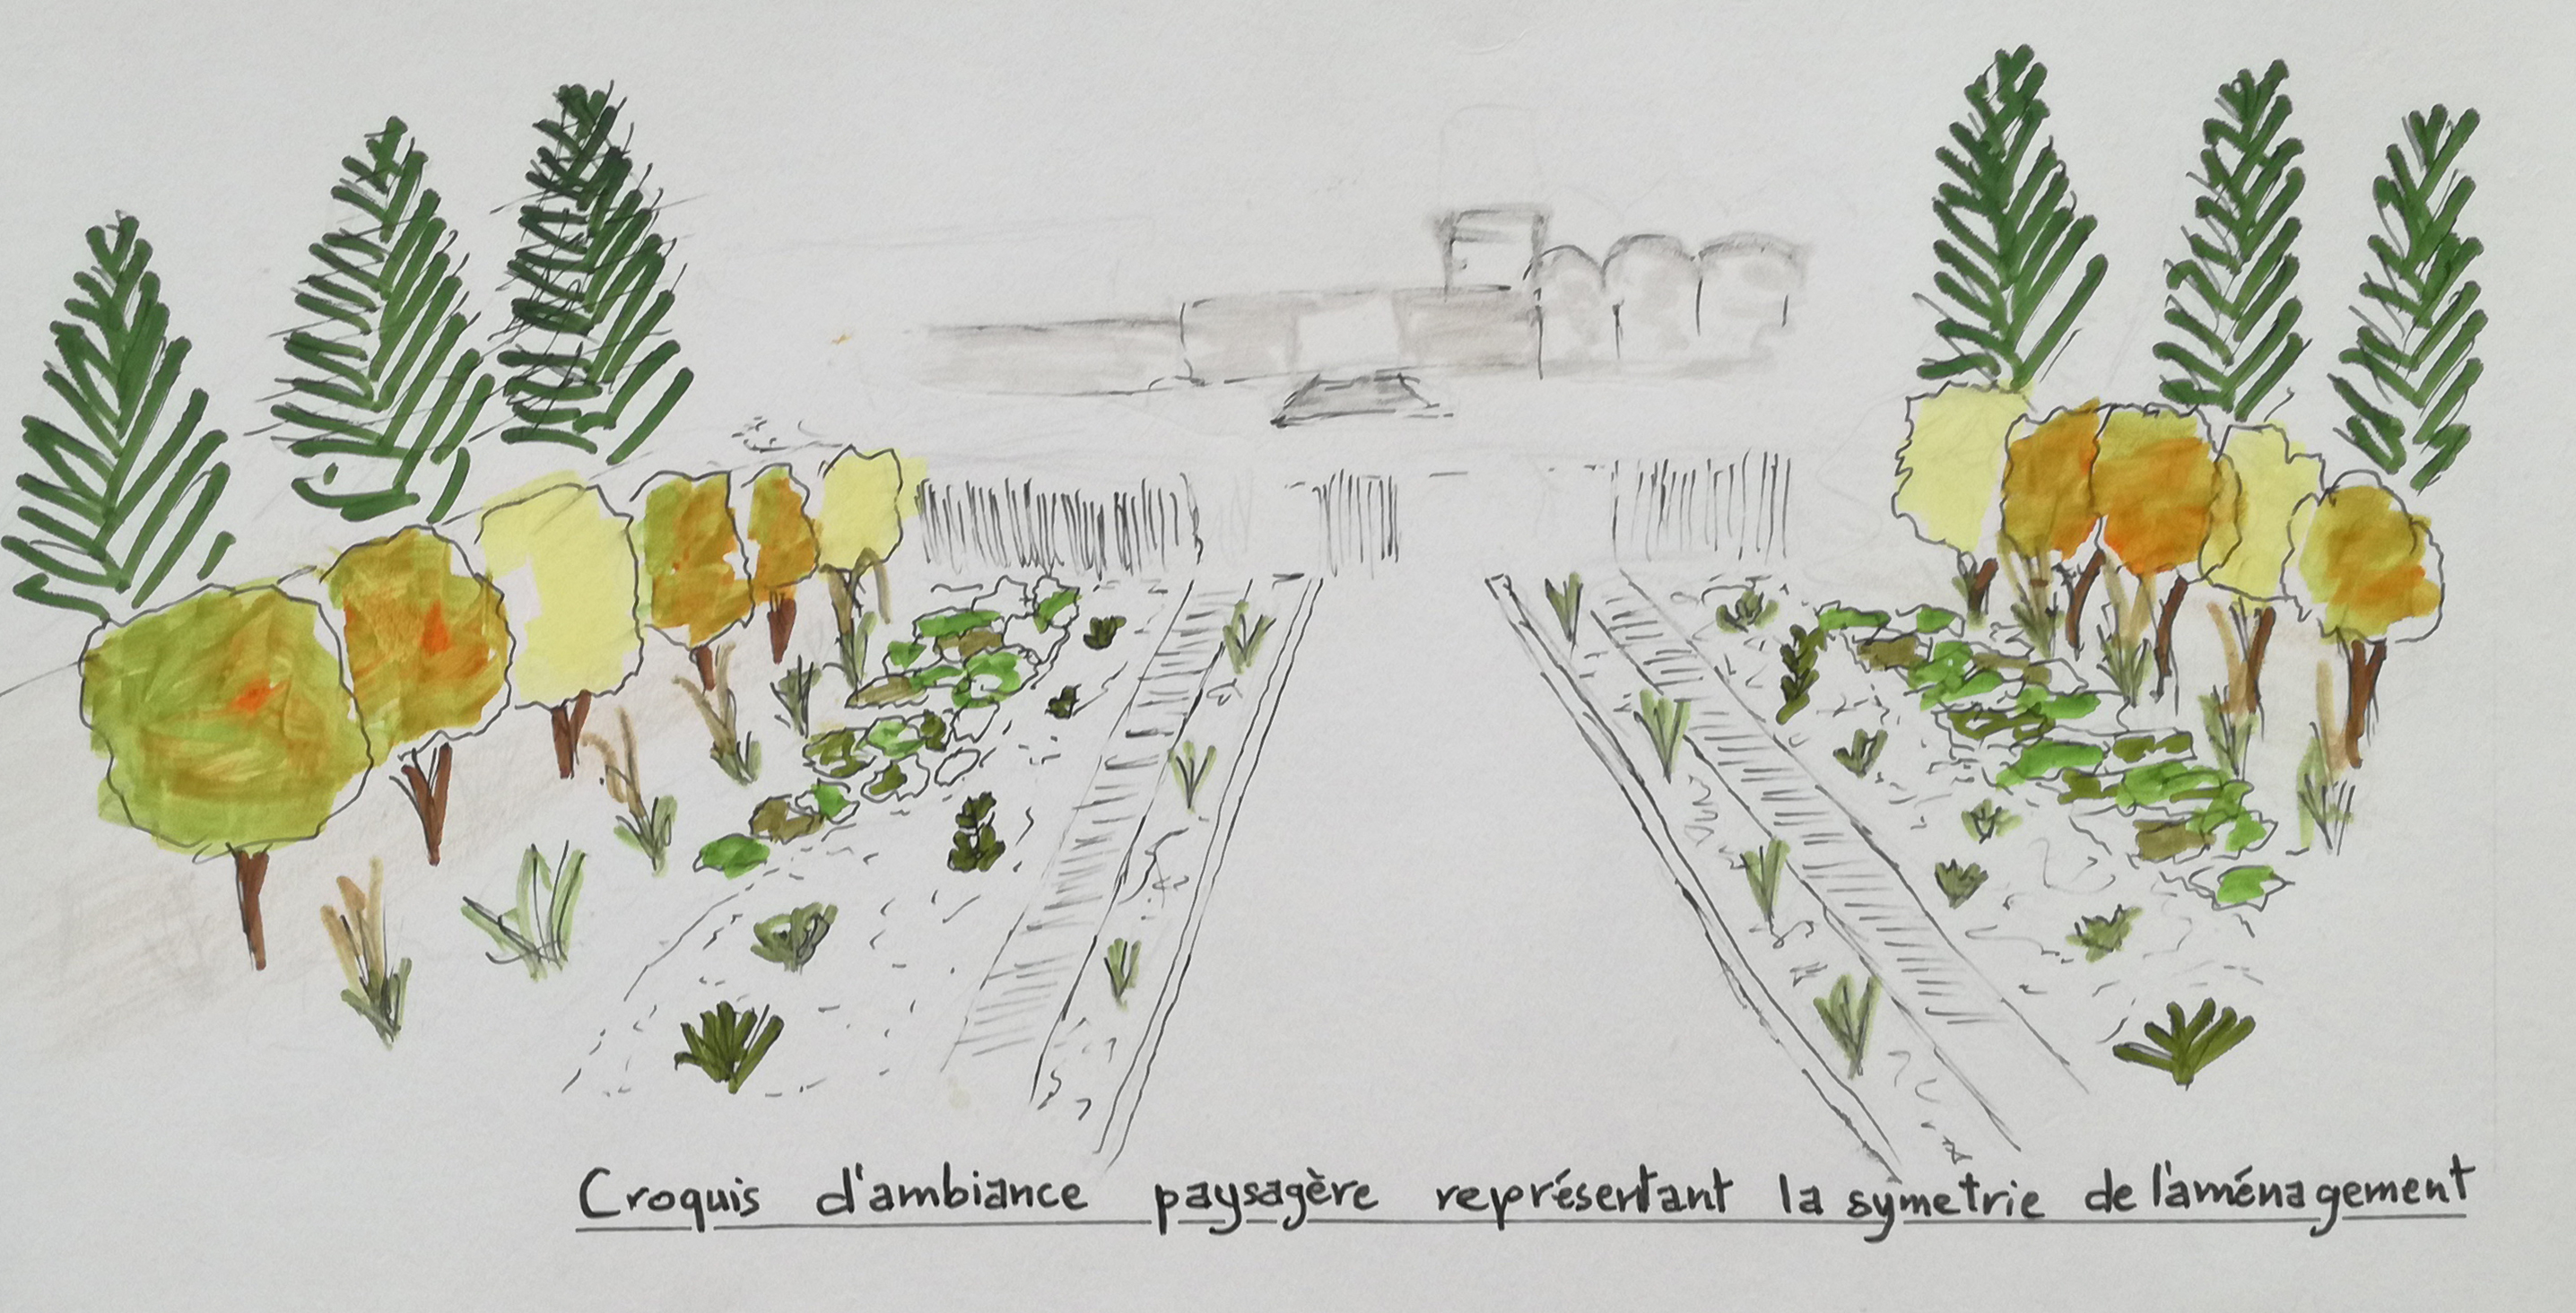 Croquis d'ambiance paysagère représentant la symetrie de l'aménagement